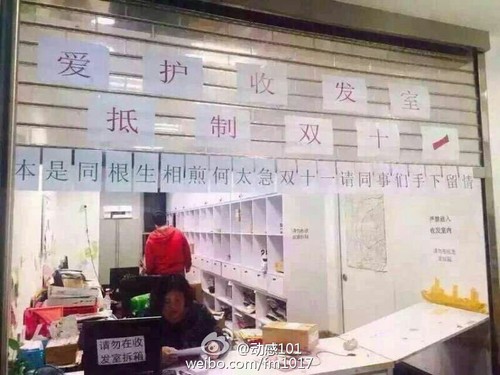 爱护收发室
抵制双十一
本是同根生相煎何太急双十一请同事们手下留情
严禁他人
收发室内
请勿在收
发室拆箱
@动感101
weibo.com/fm1017